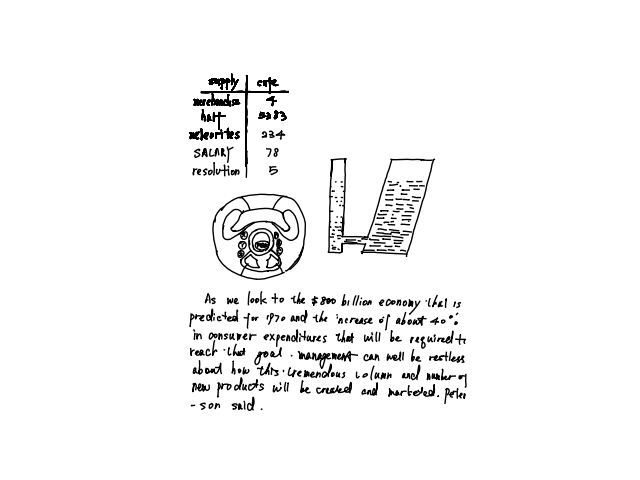 supply cute
merchandise 4
half 5283
meteorites 234
SALARY 78
resolution 5
As we look to the $800 billion economy that is
predicted for 1970 and the increase of about 40%
in consumer expenditures that will be required to
reach that goal. management can well be restless
about how this tremendous column and number of
new products will be created and marketed. Peter
-son said.